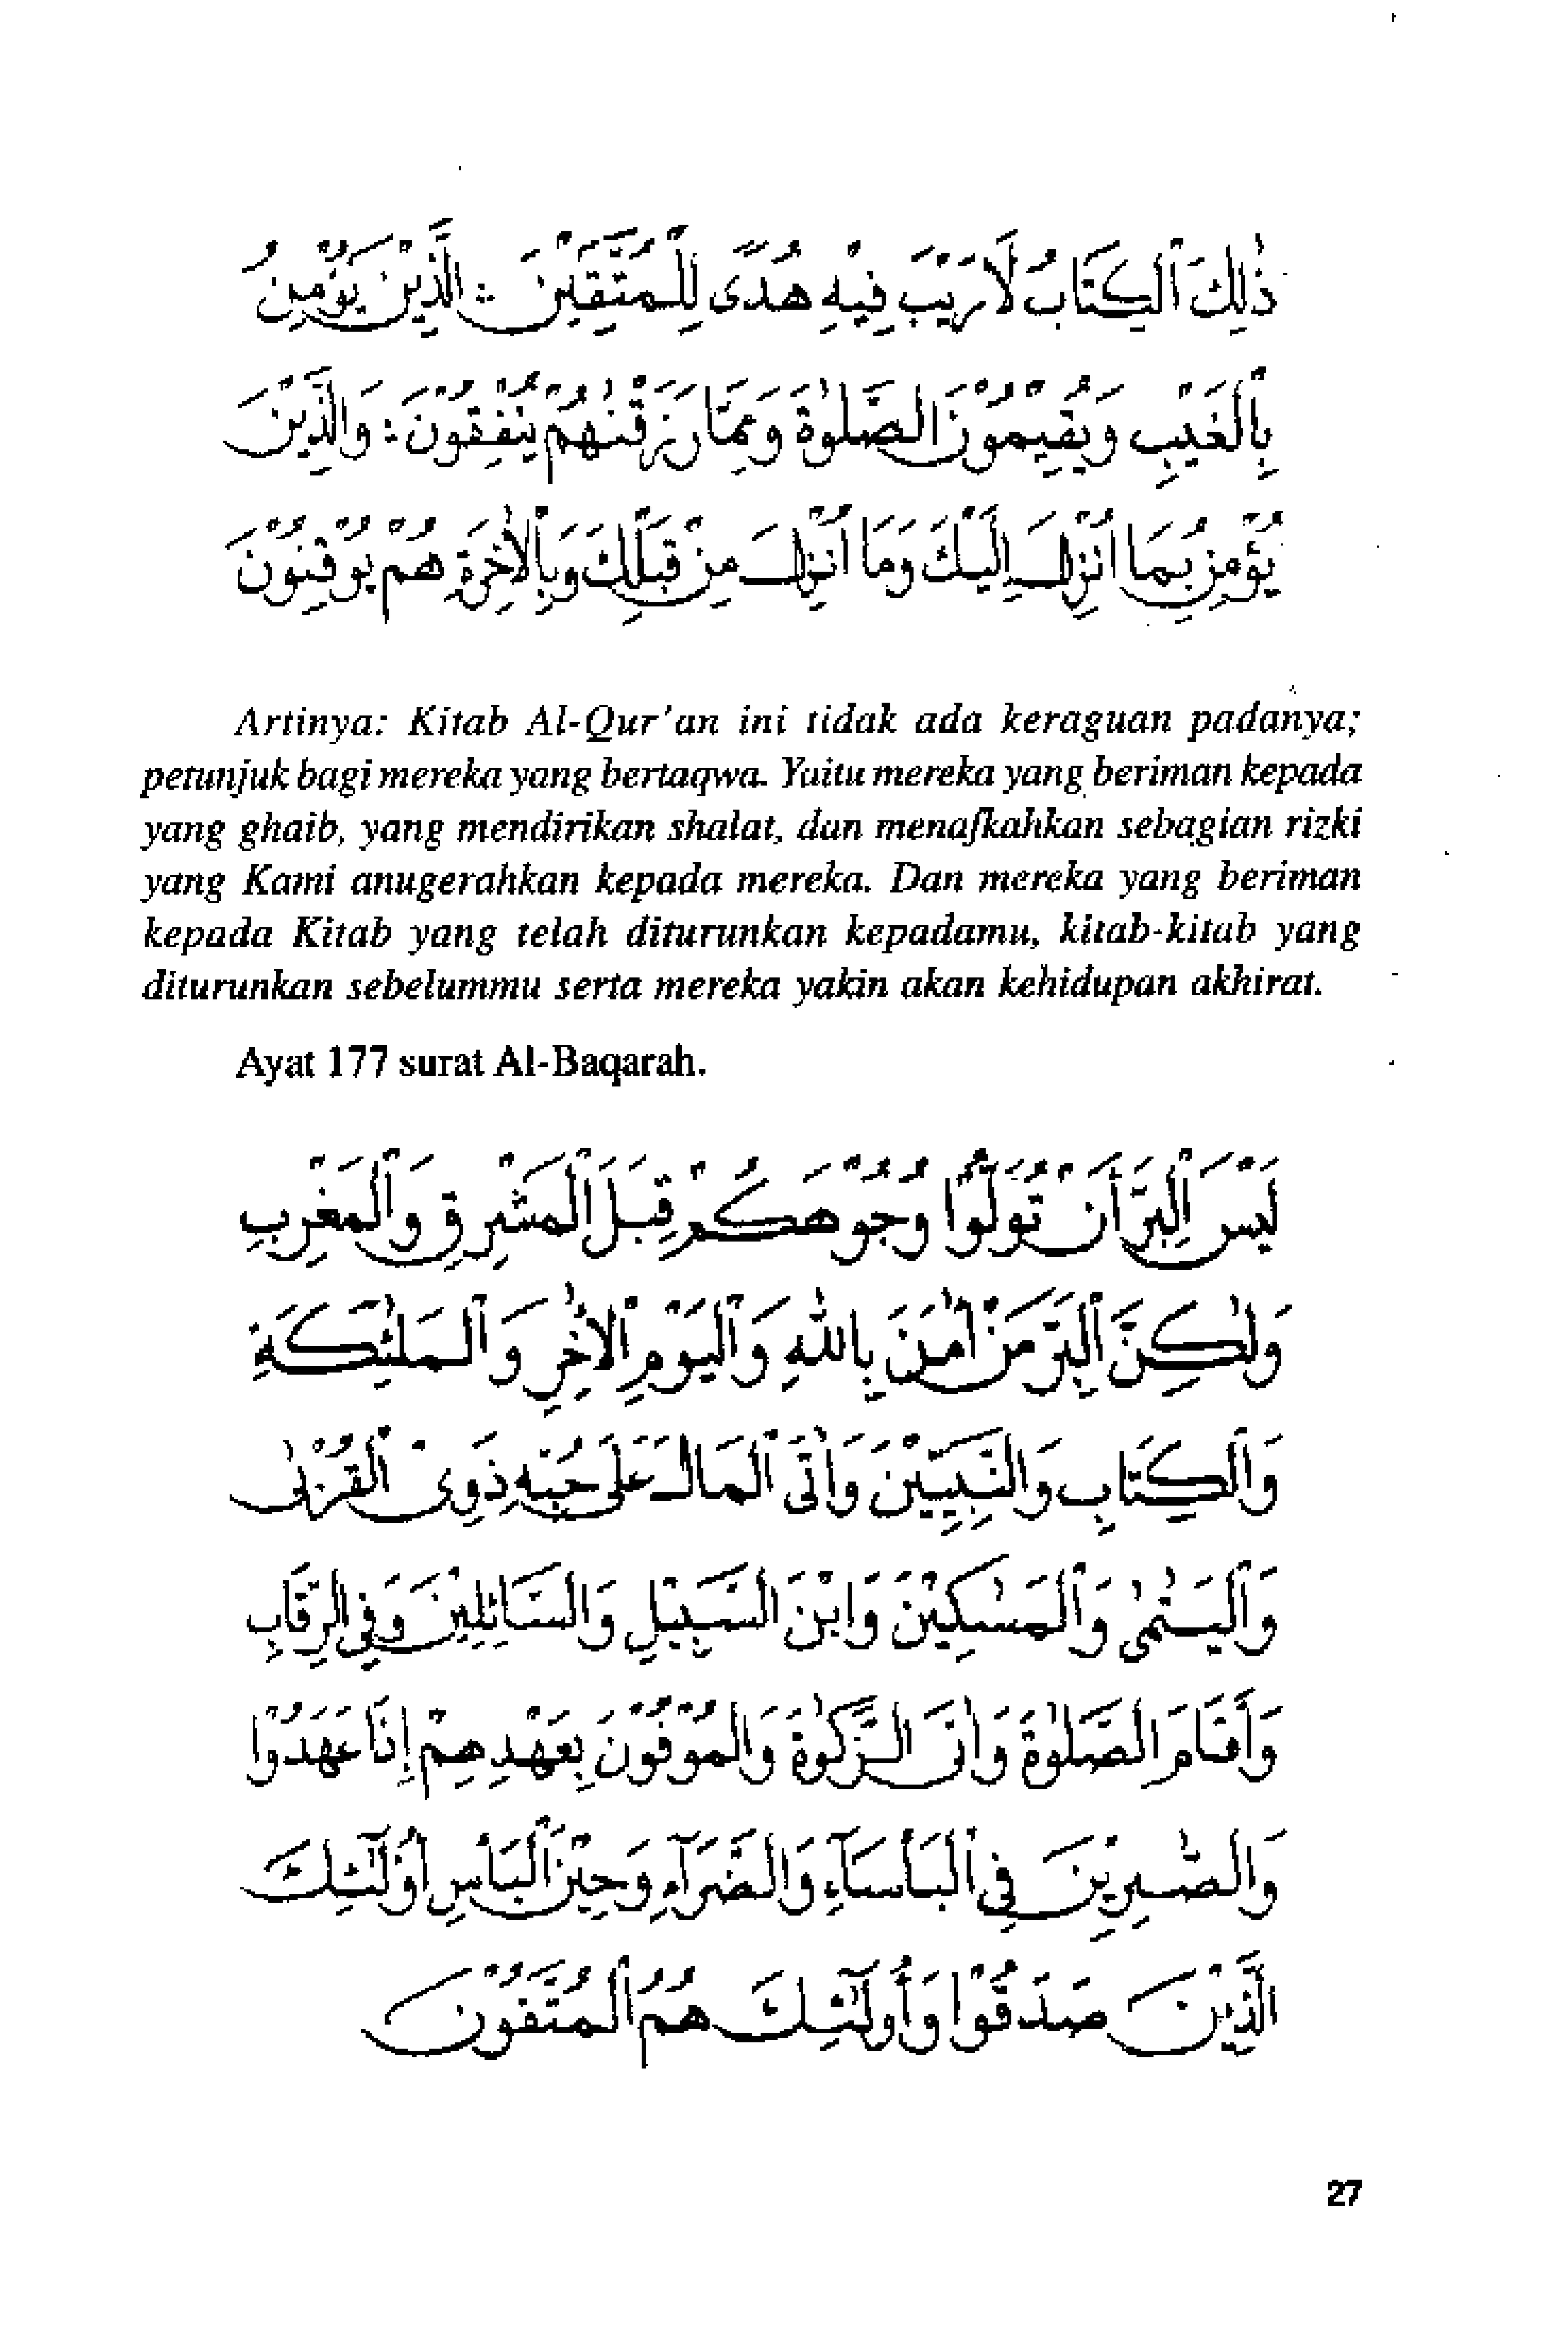 ذٰلِكَ الْكِتَابُ لَا رَيْبَ فِيْهِ هُدًى لِّلْمُتَّقِيْنَ : الَّذِيْنَ يُؤْمِنُ
بِالْغَيْبِ وَيُقِيْمُوْنَ الصَّلٰوةَ وَمِمَّا رَزَقْنٰهُمْ يُنْفِقُوْنَ : وَالَّذِيْنَ
يُؤْمِنُ بِمَا اُنْزِلَ اِلَيْكَ وَمَا اُنْزِلَ مِنْ قَبْلِكَ وَبِالْاٰخِرَةِ هُمْ يُوْقِنُوْنَ
Artinya: Kitab Al-Qur'an ini tidak ada keraguan padanya;
petunjuk bagi mereka yang bertaqwa. Yaitu mereka yang beriman kepada
yang ghaib, yang mendirikan shalat, dan menafkahkan sebagian rizki
yang Kami anugerahkan kepada mereka. Dan mereka yang beriman
kepada Kitab yang telah diturunkan kepadamu, kitab-kitab yang
diturunkan sebelummu serta mereka yakin akan kehidupan akhirat.
Ayat 177 surat Al-Baqarah.
لَيْسَ الْبِرَّ أَنْ تُوَلُّوْا وُجُوْهَكُمْ قِبَلَ الْمَشْرِقِ وَالْمَغْرِبِ
وَلٰكِنَّ الْبِرَّ مَنْ اٰمَنَ بِاللهِ وَالْيَوْمِ الْاٰخِرِ وَالْمَلٰئِكَةِ
وَالْكِتَابِ وَالنَّبِيِّيْنَ وَاٰتَى الْمَالَ عَلَى حُبِّهِ ذَوِى الْقُرْبٰى
وَالْيَتٰمٰى وَالْمَسٰكِيْنَ وَابْنَ السَّبِيْلِ وَالسَّائِلِيْنَ وَفِى الرِّقَابِ
وَأَقَامَ الصَّلٰوةَ وَاٰتَى الزَّكٰوةَ وَالْمُوْفُوْنَ بِعَهْدِهِمْ إِذَا عٰهَدُوْا
وَالصّٰبِرِيْنَ فِى الْبَأْسَآءِ وَالضَّرَآءِ وَحِيْنَ الْبَأْسِ أُولٰٓئِكَ
الَّذِيْنَ صَدَقُوْا وَأُولٰٓئِكَ هُمُ الْمُتَّقُوْنَ
27